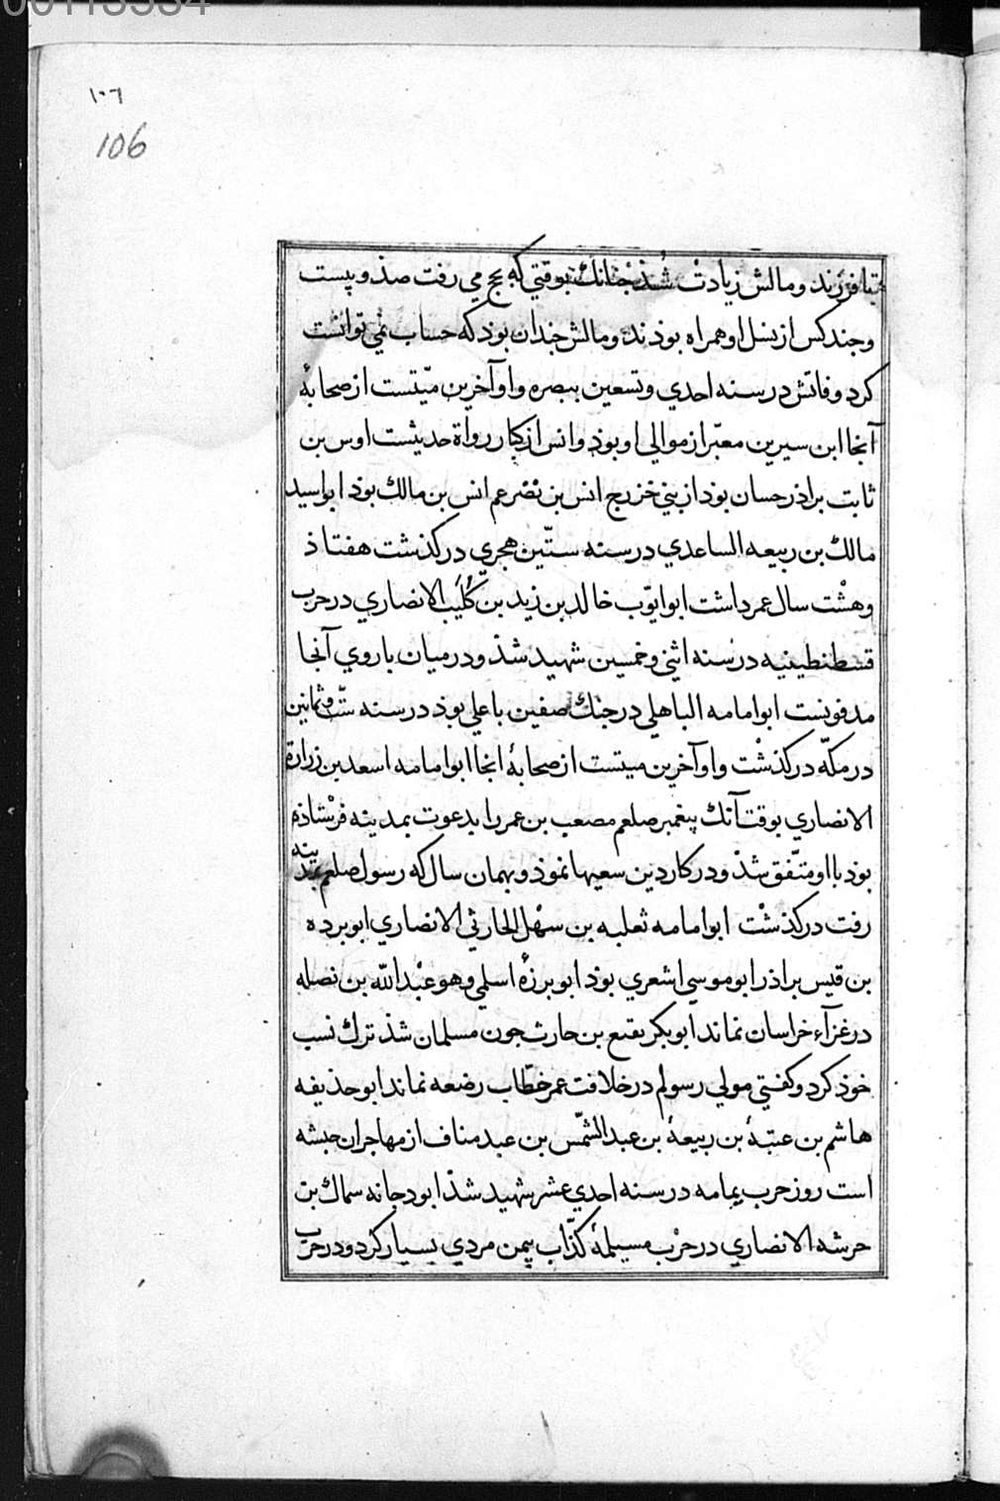 00113334
١٠٦
106
تبا فرزند و مالش زیادت شذ جنانك بوقتي که بحج مي رفت صذ و بیست
و جند کس از نسل او همراه بوذند و مالش جندان بوذ که حساب نمي توانست
کرد وفاتش در سنه احدي و تسعین ببصره و او آخرین میّتست از صحابۀ
آنجا ابن سیرین معبّر از موالي او بوذ و انس از کبار رواة حدیثست اوس بن
ثابت براذر حسان بوذ از بني خزرج انس بن نضر عم انس بن مالك بوذ ابو اسید
مالك بن ربیعه الساعدي در سنه ستّین هجري در کذشت هفتاذ
و هشت سال عمر داشت ابو ایوّب خالد بن زید بن کُلَیب الانصاري در حرب
قسطنطینیه در سنه اثني و خمسین شهید شذ و در میان باروي آنجا
مدفونست ابو امامه الباهلي در جنك صفین با علي بوذ در سنه ستّ و ثمانین
در مکّه در کذشت و او آخرین میتست از صحابۀ انجا ابو امامه اسعد بن زرارة
الانصاري بوقت آنك پیغمبر صلعم مصعب بن عمر را بدعوت بمدینه فرستاذه
بوذ با او متّفق شذ و در کار دین سعیها نموذ و بهمان سال که رسول صلعم بمدینه
رفت در کذشت ابو امامه ثعلبه بن سهل الحارثي الانصاري ابو برده
بن قیس براذر ابو موسي اشعري بوذ ابو برزه اسلمي و هو عبد الله بن نصله
در غزآء خراسان نماند ابو بکر نفیع بن حارث جون مسلمان شذ ترك نسب
خوذ کرد و کفتي مولي رسولم در خلافت عمر خطّاب رضعه نماند ابو حذیفه
هاشم بن عتبۀ بن ربیعۀ بن عبد الشمّس بن عبد مناف از مهاجران حبشه
است روز حرب یمامه در سنه احدي عشر شهید شذ ابو دجانه سماك بن
خرشه الانصاري در حرب مسیلمۀ کذّاب بیمن مردي بسیار کرد و در حرب